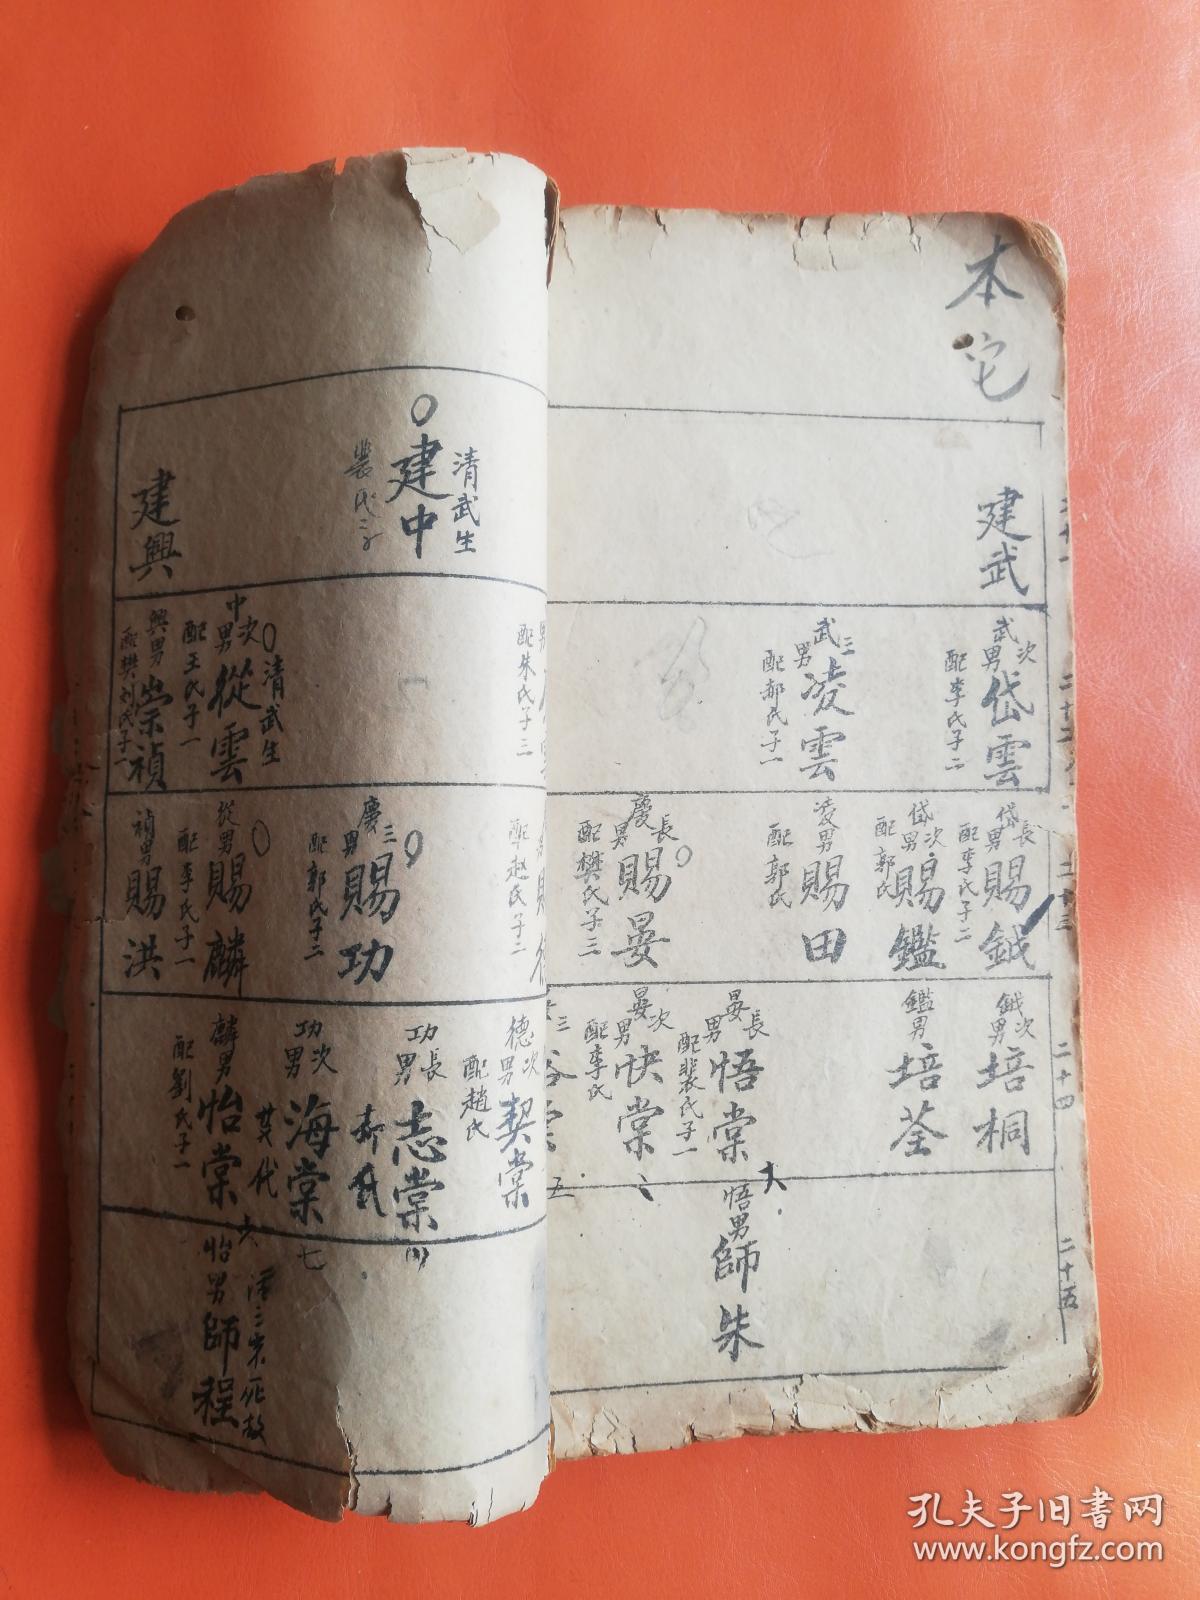 本宅
二十一
二十二
二十三
二十四
二十五
建武
武次男
岱雲
配李氏子二
武三男
凌雲
配郝氏子一
岱長男
賜鉞
配李氏子二
岱次男
賜鑑
配郭氏
凌男
賜田
配郭氏
慶長男
賜晏
配樊氏子三
鉞次男
培桐
鑑男
培荃
晏長男
悟棠
配裴氏子一
晏次男
快棠
配李氏
悟男
師朱
五
清武生
建中
裴氏
建興
配朱氏子三
中次男
清武生
從雲
配王氏子一
興男
崇禎
配樊刘氏子一
配赵氏子二
慶三男
賜功
配郭氏子二
從男
賜麟
配李氏子一
禎男
賜洪
德次男
契棠
配趙氏
功長男
志棠
功次男
海棠
七
麟男
怡棠
配劉氏子一
六
怡男
師程
孔夫子旧书网
www.kongfz.com